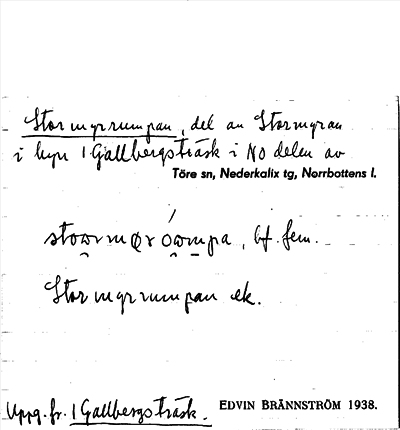 Stormyrrumpan, del av Stormyran
i byn 1 Gallbergsträsk i NO delen av
Töre sn, Nederkalix tg, Norrbottens l.
bf. fem.
Stormyrrumpan ek.
Uppg. fr. 1 Gallbergsträsk. EDVIN BRÄNNSTRÖM 1938.